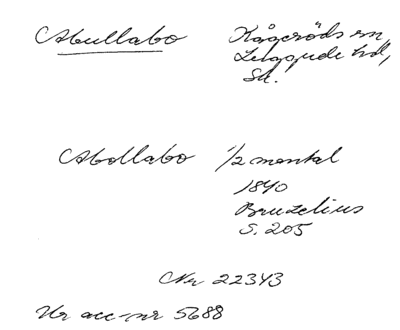 Abullabo Kågeröds sn,
Luggude hd,
Sk.
Abollabo 1/2 mantal
1840
Bruzelius
S. 205
Nr 22343
Ur acc-nr 5688